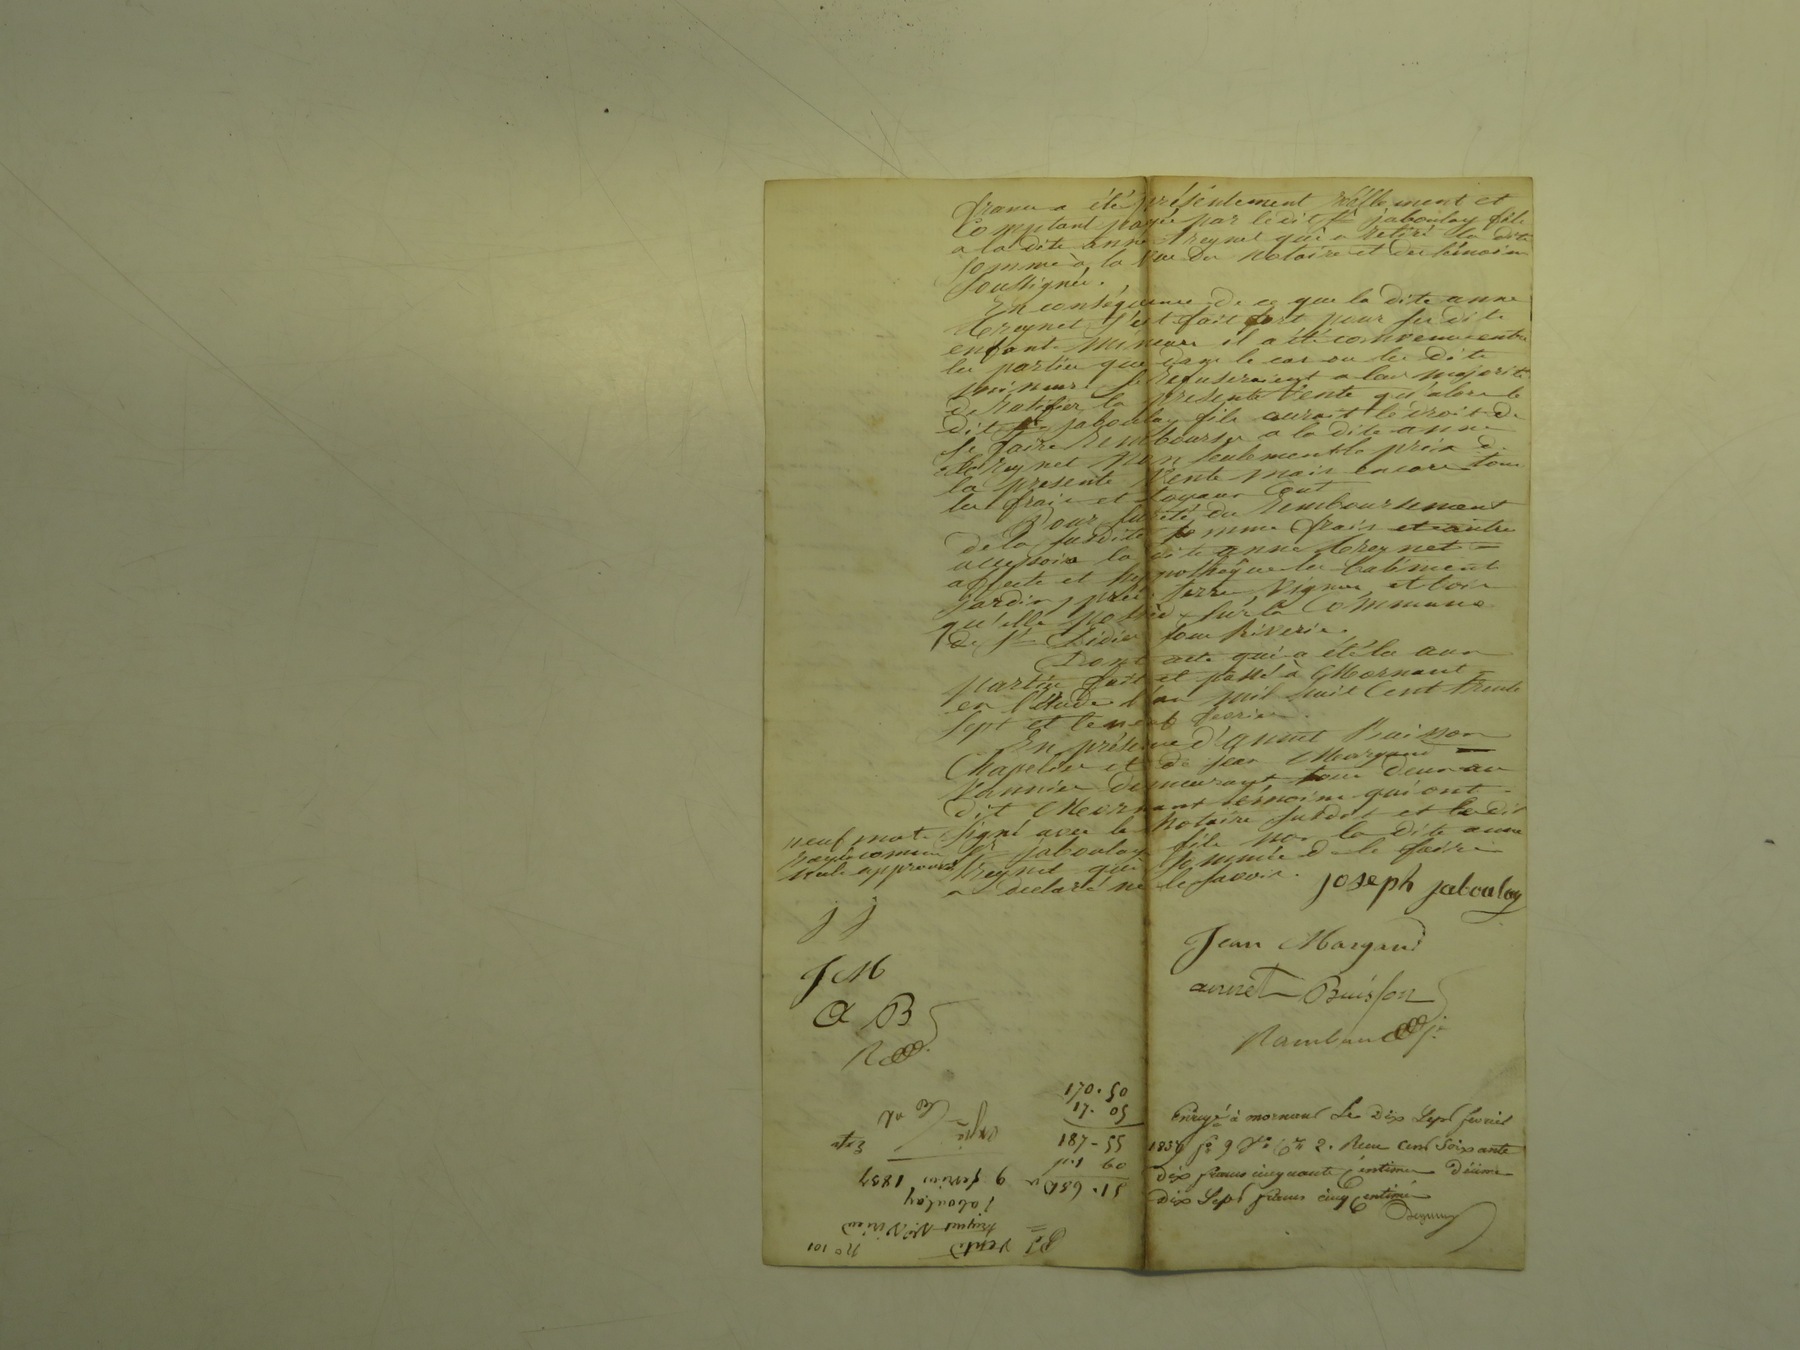 francs a été présentement réellement et
Comptant payée par le dit Sr jaboulay fils
a la dite anne Treynet qui a retiré la dite
somme à la vue du Notaire et des témoins
soussignés.
En conséquence de ce que la dite anne
Treynet s'est fait fort pour ses dits
enfants Mineurs il a été convenu entre
les parties que dans le cas ou les dits
mineurs se refuseraient a leur majorité
de ratifier la présente Vente qu'alors le
dit Sr jaboulay fils aurait le droit de
se faire Rembourser a la dite anne
Treynet non seulement le prix de
la présente Vente mais encore tous
les frais et Loyaux Cout
Pour sureté du Remboursement
de la susdite somme frais et autre
accessoire la dite anne Treynet
affecte et hypothêque les batiment
jardin, prés, terre Vignes et bois
qu'elle possède sur la Commune
de St Didier sous Riverie.
Dont acte qui a été lu aux
parties fait et passé à Mornant
en l'étude l'an mil huit Cent trente
sept et le neuf fevrier.
En présence d'annet Buisson
Chapelier et de jean Margand
Vannier demeurant tous deux au
dit Mornant témoins qui ont
signé avec le Notaire susdit et le dit
Sr jaboulay fils non la dite anne
Treynet qui sommée de le faire
a declaré ne le savoir.
neuf mots
rayés comme
nuls approuvés
joseph jaboulay
j j
Jean Margand
J M
annet Buisson
A B
R
Enregé à mornant Le Dix Sept fevrier
1837 fo 9 Vo Ces 2. Reçu cent soixante
dix francs cinquante Centimes décime
Dix Sept francs cinq Centimes
no 101
Vente
Treynet Ve Viricel
jaboulay
9 fevrier 1837
Exte
expié
51.
09
55 - 187
50 . 17
05 . 170